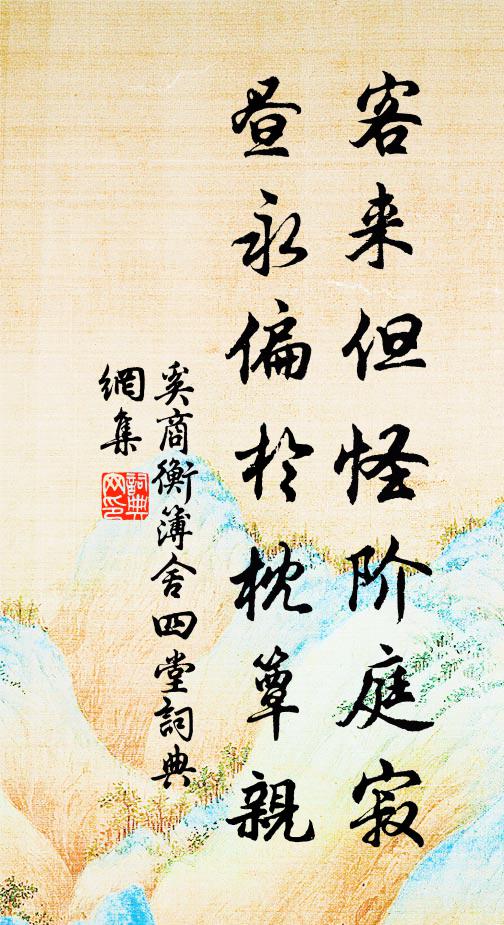 客来但怪阶庭寂
昼永偏於枕簟親
奚商衡簿舍四堂詞典
網集
詞典網印